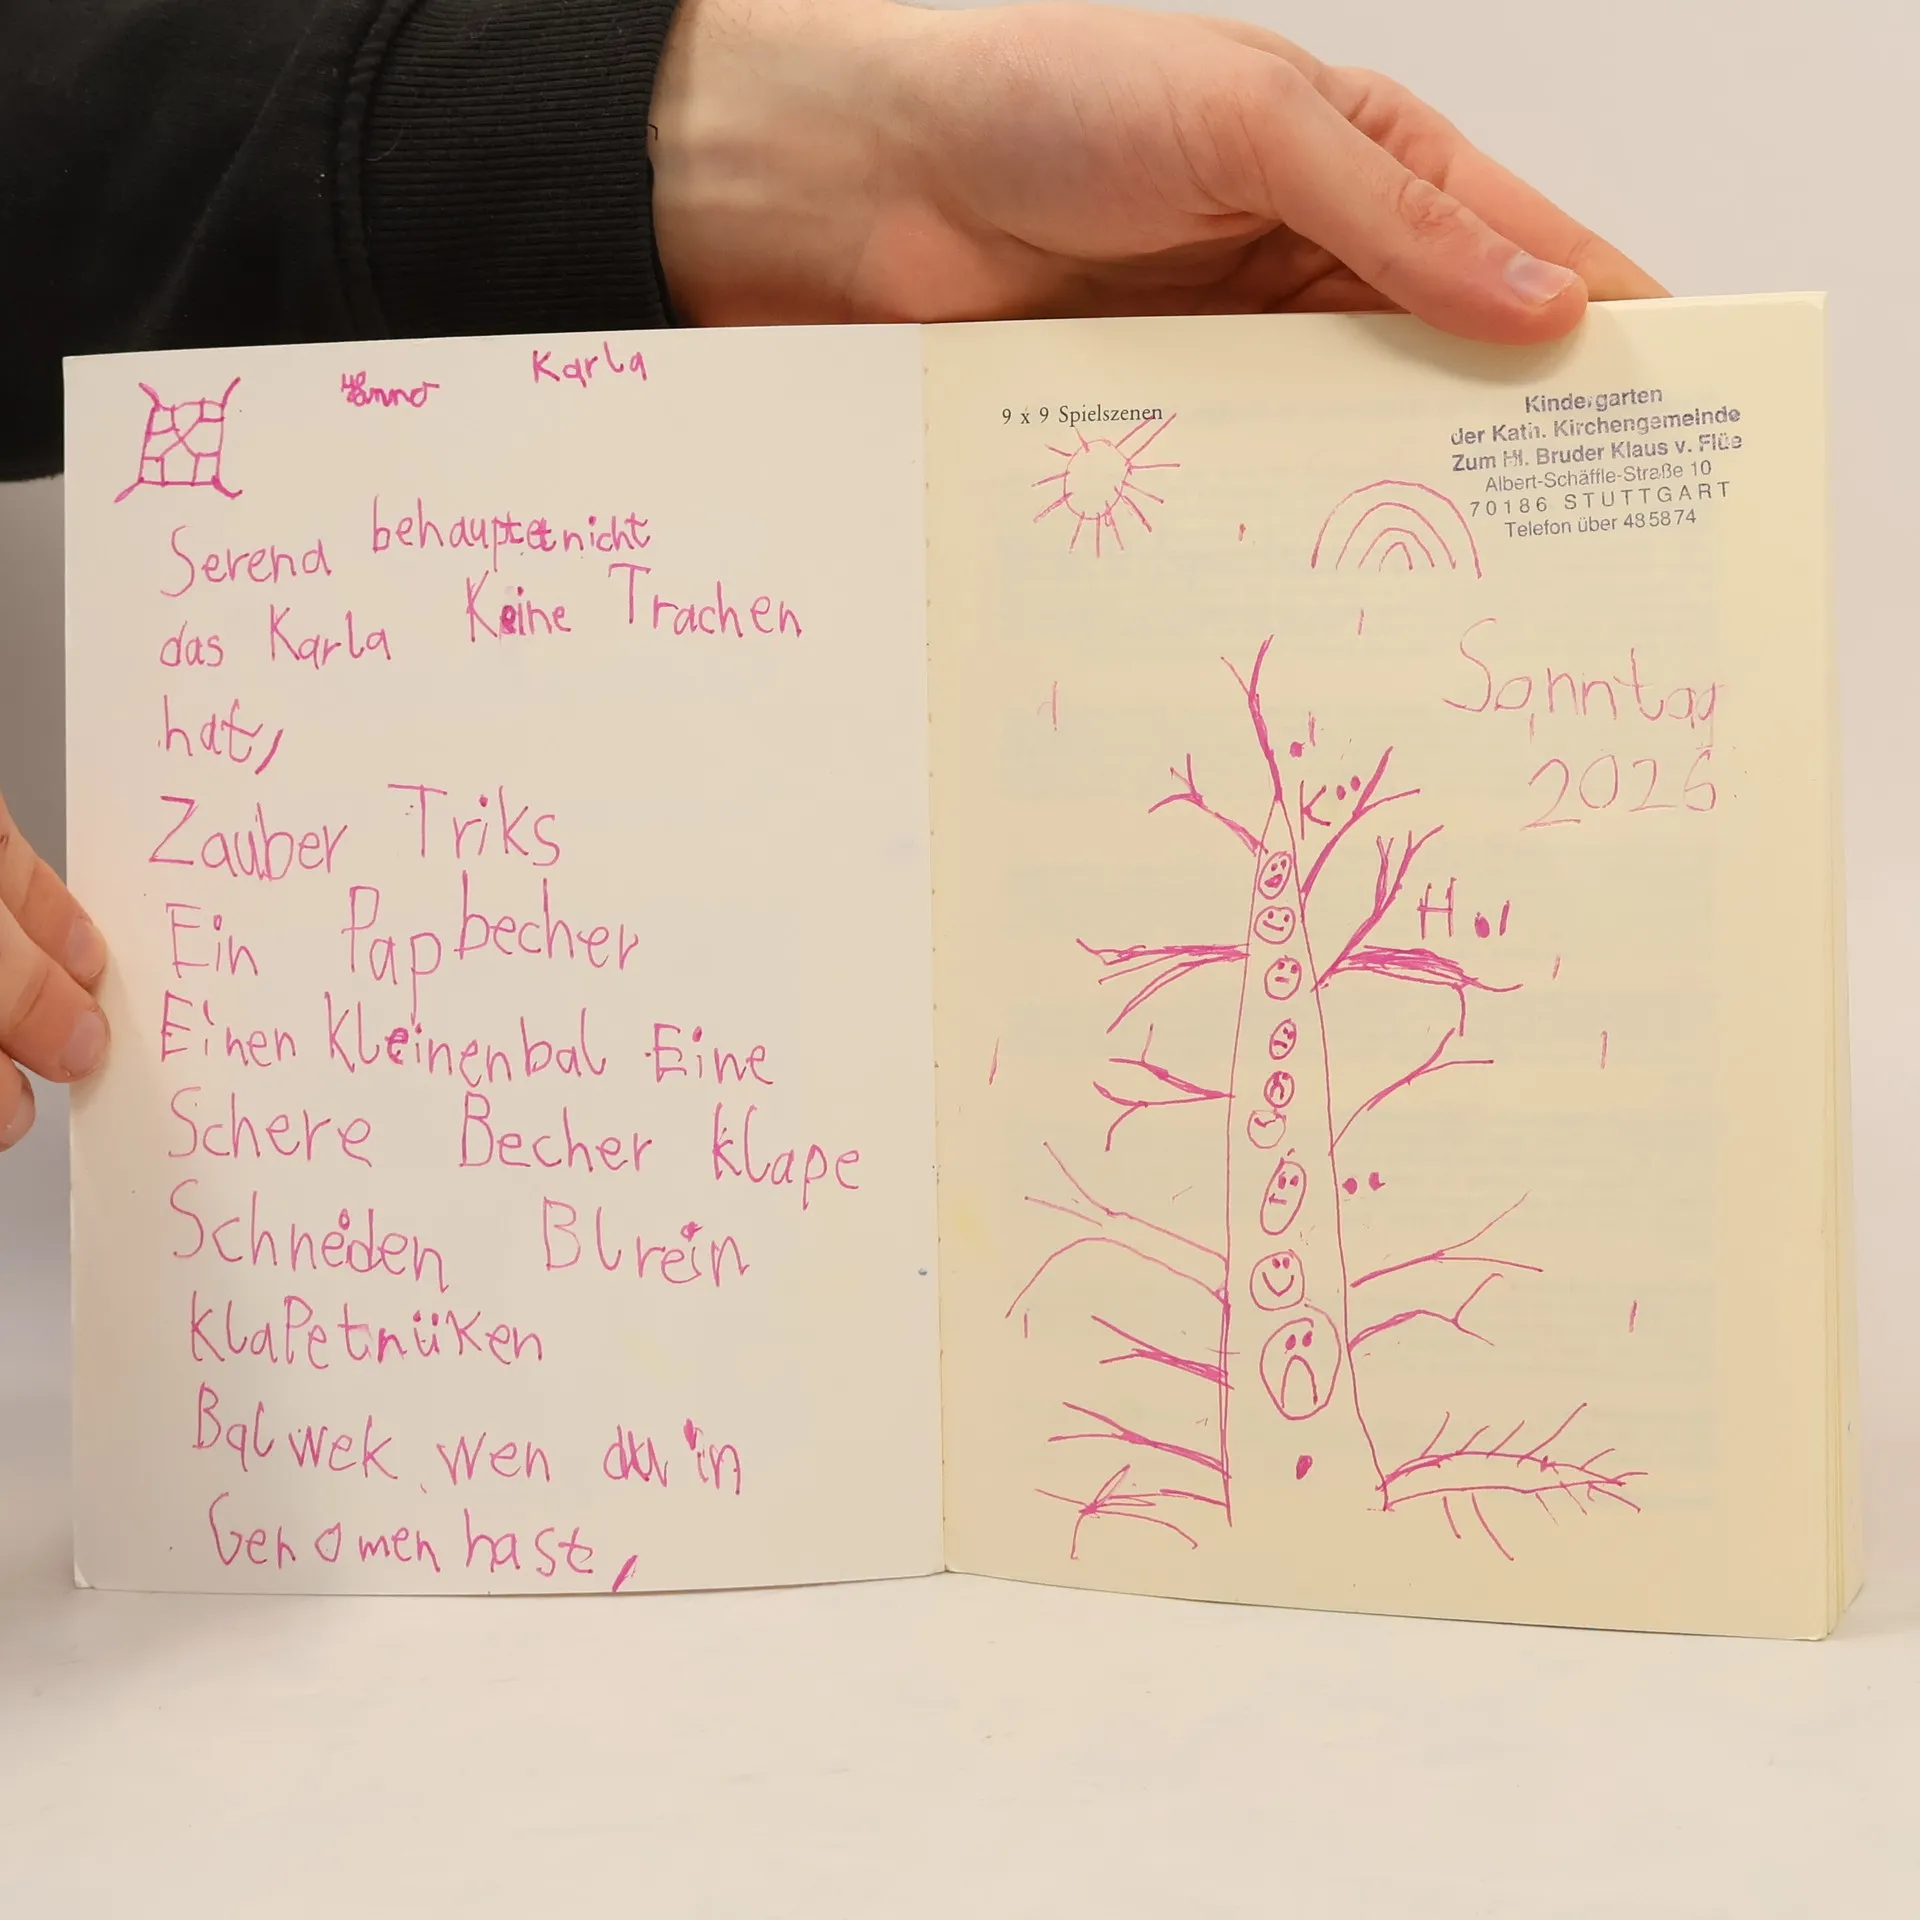 Karla
Serend behauptet nicht
das Karla Keine Trachen
hat,
Zauber Triks
Ein Papbecher
Einen Kleinenbal Eine
Schere Becher klape
Schneden Bl rein
KlaPetnüken
Bal wek wen du in
Genomen hast,
9 x 9 Spielszenen
Kindergarten
der Kath. Kirchengemeinde
Zum Hl. Bruder Klaus v. Flüe
Albert-Schäffle-Straße 10
70186 STUTTGART
Telefon über 485874
Sonntag
2025
K
H